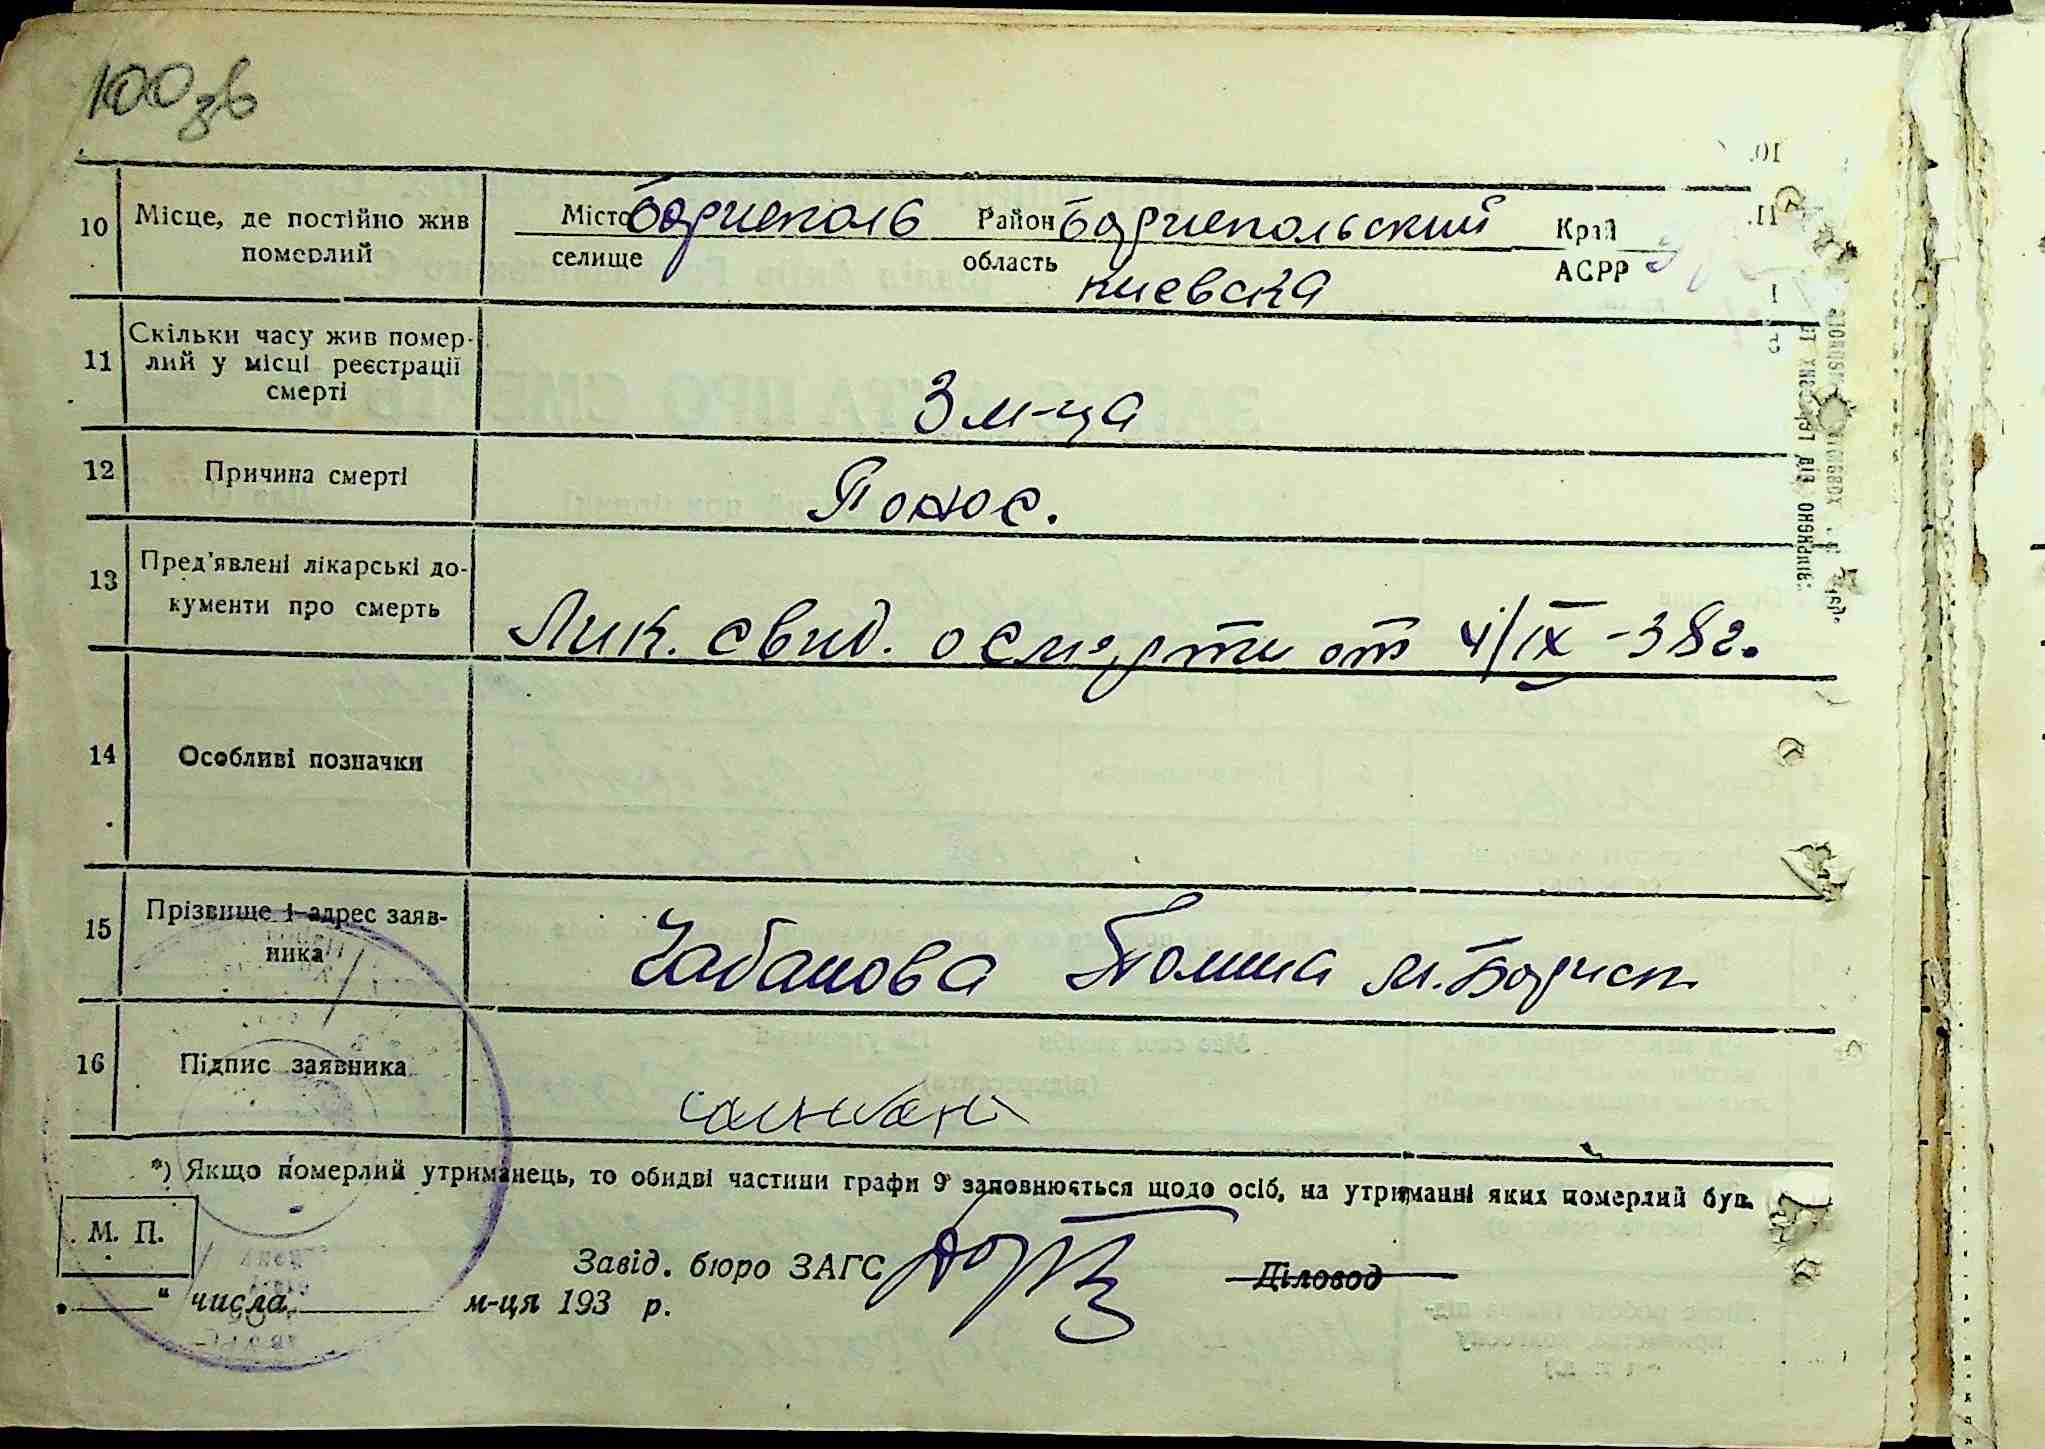 100 зв
10 Місце, де постійно жив померлий
Місто Бориспіль Район Бориспольский Край
селище область АСРР
киевска
11 Скільки часу жив помер-
лий у місці реєстрації
смерті
3 м-ца
12 Причина смерті
Понос.
13 Пред'явлені лікарські до-
кументи про смерть
Лик. свид. о смерти от 4/IX -38 г.
14 Особливі позначки
15 Прізвище і адрес заяв-
ника
Чабанова м. Борисп
16 Підпис заявника
*) Якщо померлий утриманець, то обидві частини графи 9 заповнюється щодо осіб, на утриманні яких померлий був.
М. П.
Завід. бюро ЗАГС Діловод
„ " числа м-ця 193 р.